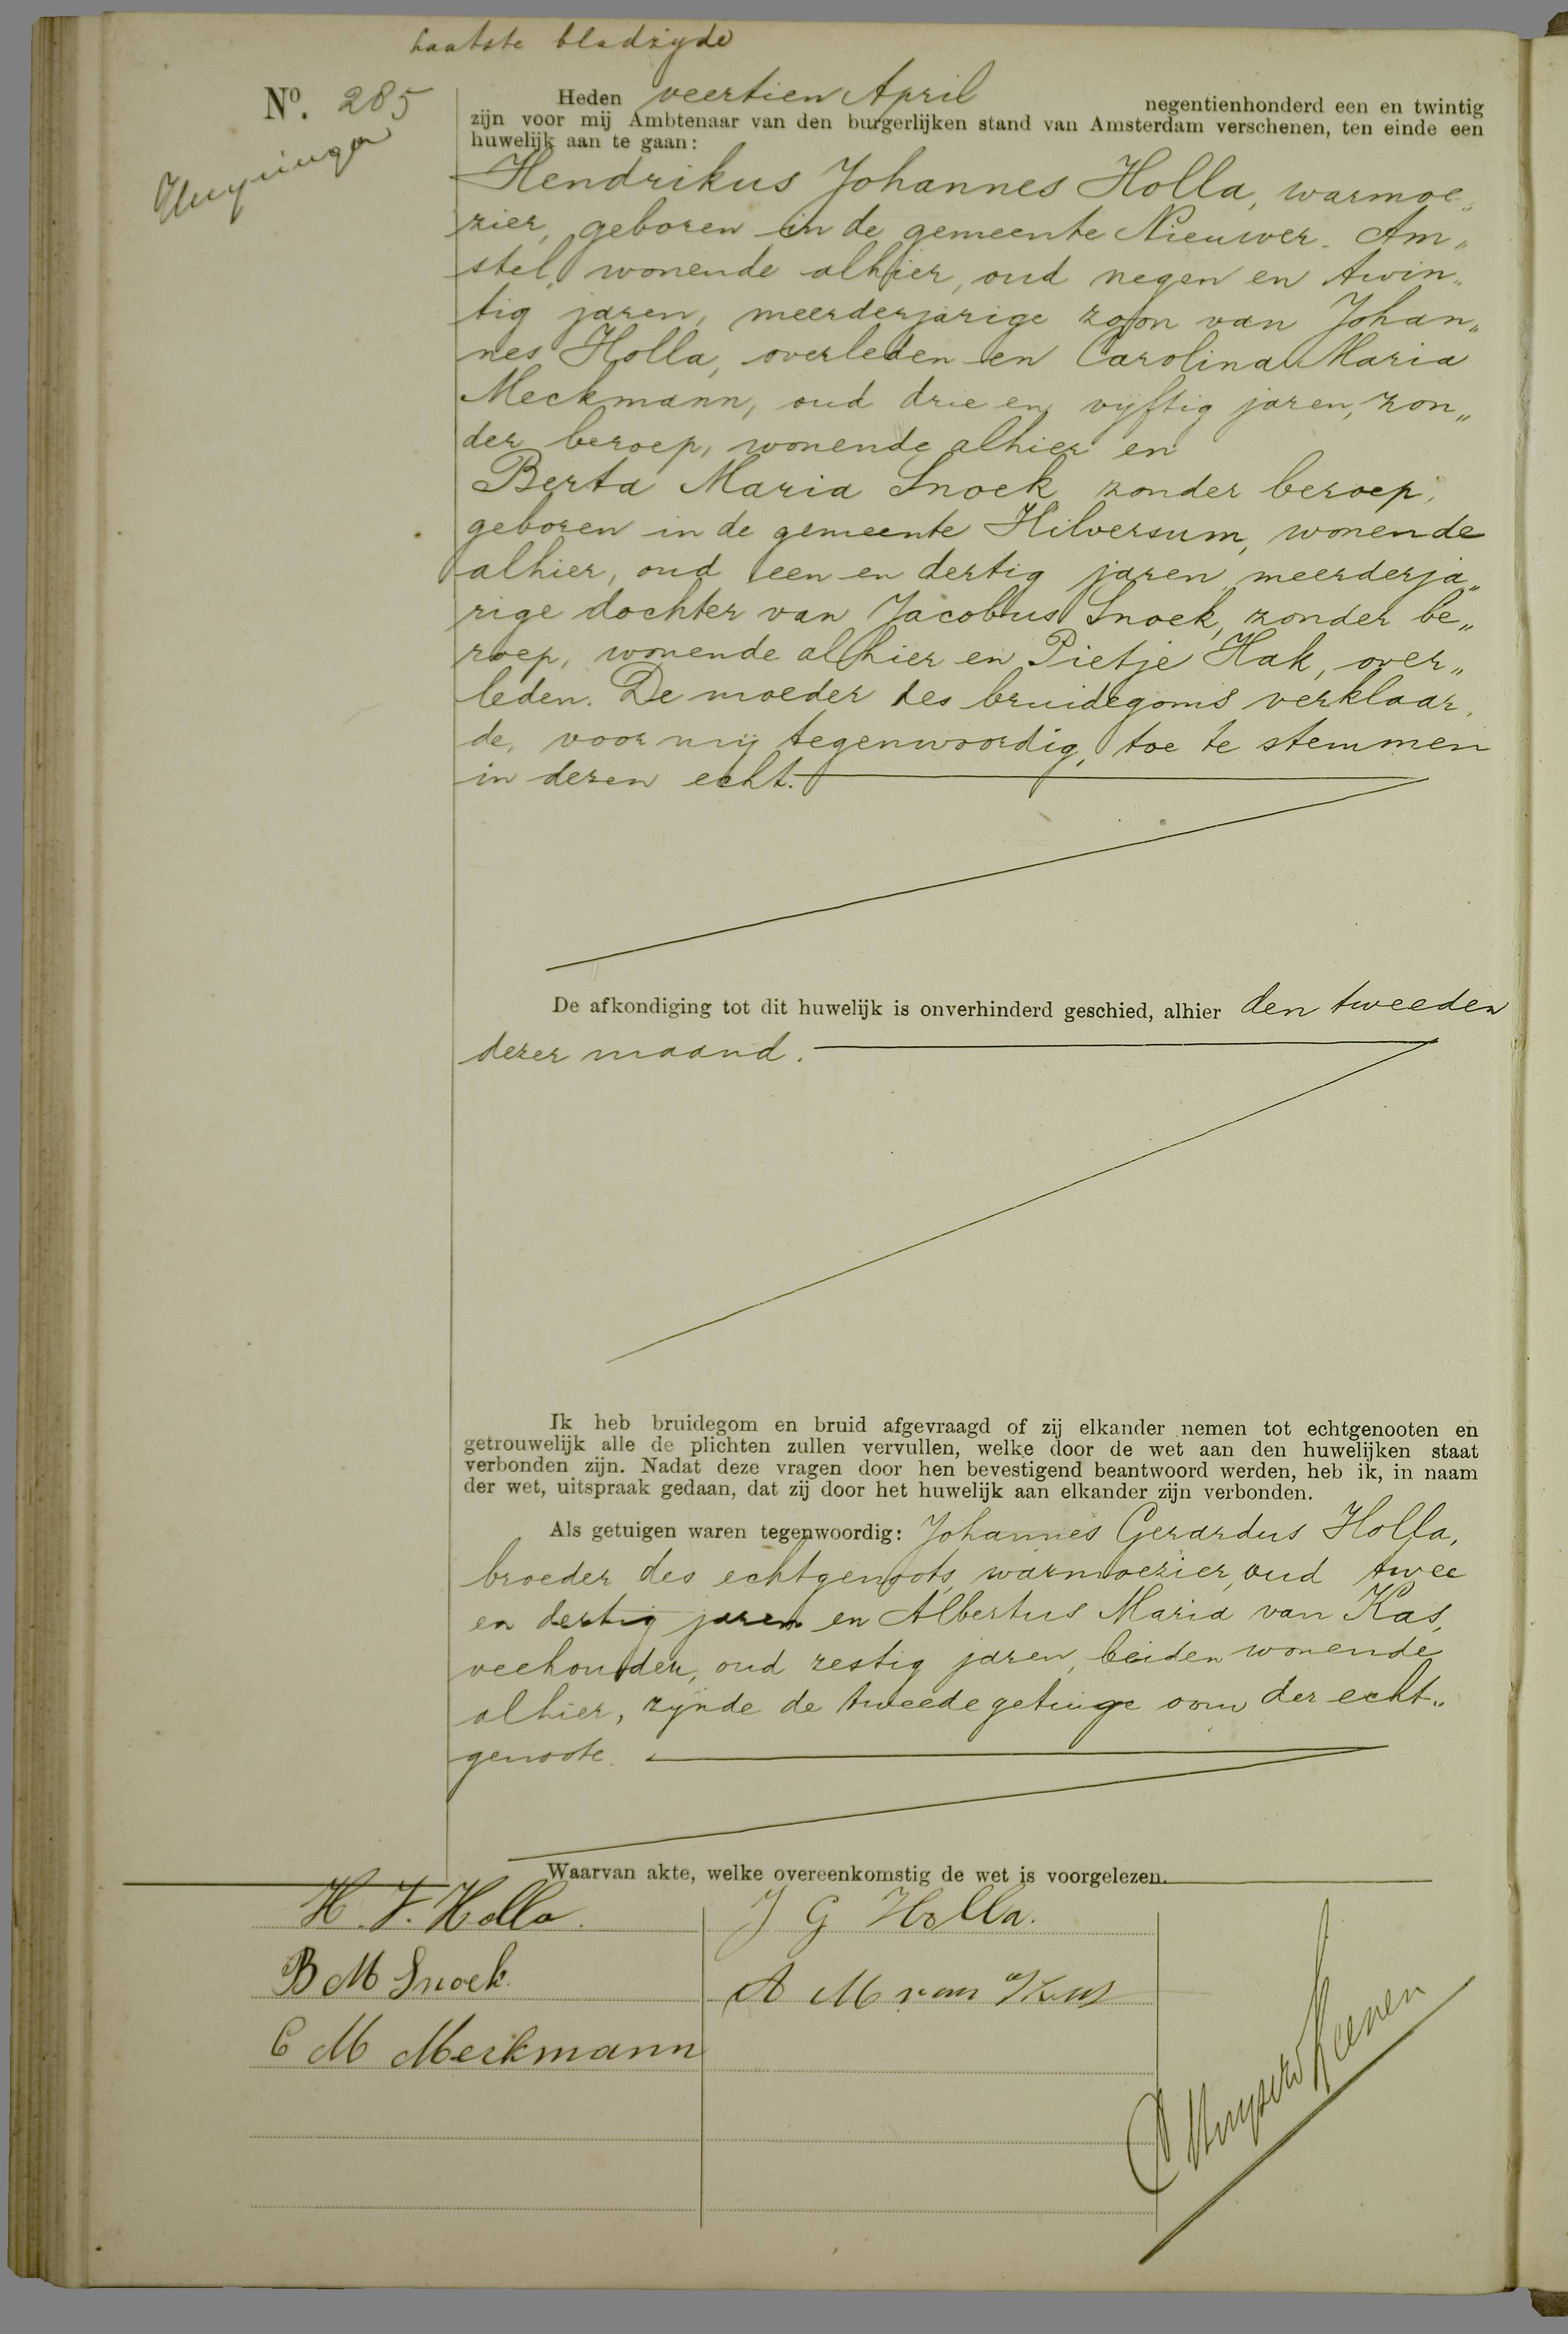 Laatste bladzijde
No. 285
Heden veertien April negentienhonderd een en twintig
zijn voor mij Ambtenaar van den burgerlijken stand van Amsterdam verschenen, ten einde een
huwelijk aan te gaan:
Hendrikus Johannes Holla, warmoe„
zier, geboren in de gemeente Nieuwer-Am„
stel, wonende alhier, oud negen en twin„
tig jaren, meerderjarige zoon van Johan„
nes Holla, overleden en Carolina Maria
Meckmann, oud drie en vijftig jaren, zon„
der beroep, wonende alhier en
Berta Maria Snoek zonder beroep,
geboren in de gemeente Hilversum, wonende
alhier, oud een en dertig jaren meerderja„
rige dochter van Jacobus Snoek, zonder be„
roep, wonende alhier en Pietje Hak, over„
leden. De moeder des bruidegoms verklaar„
de, voor mij tegenwoordig, toe te stemmen
in dezen echt.
De afkondiging tot dit huwelijk is onverhinderd geschied, alhier den tweeden
dezer maand.
Ik heb bruidegom en bruid afgevraagd of zij elkander nemen tot echtgenooten en
getrouwelijk alle de plichten zullen vervullen, welke door de wet aan den huwelijken staat
verbonden zijn. Nadat deze vragen door hen bevestigend beantwoord werden, heb ik, in naam
der wet, uitspraak gedaan, dat zij door het huwelijk aan elkander zijn verbonden.
Als getuigen waren tegenwoordig: Johannes Gerardus Holla,
broeder des echtgenoots, warmoezier, oud twee
en dertig jaren en Albertus Maria van Kas,
veehouder, oud zestig jaren, beiden wonende
alhier, zijnde de tweede getuige oom der echt„
genoote.
Waarvan akte, welke overeenkomstig de wet is voorgelezen.
H. J. Holla.
J G Holla.
B M Snoek.
A M van Kas
C M Meckmann